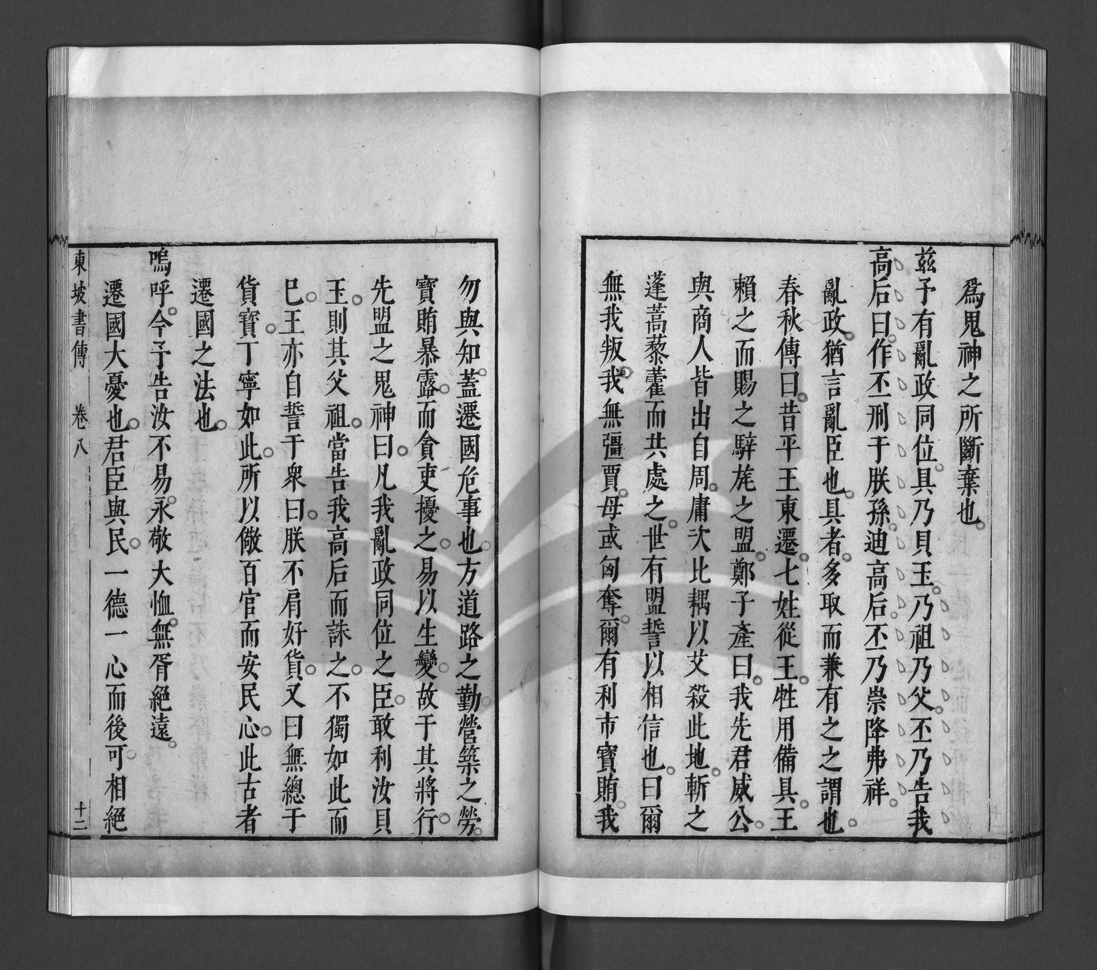 為鬼神之所斷棄也。
茲予有亂政同位。具乃貝玉。乃祖乃父。丕乃告我
高后曰。作丕刑于朕孫。迪高后。丕乃崇降弗祥。
亂政。猶言亂臣也。具者。多取而兼有之之謂也。
春秋傳曰。昔平王東遷。七姓從王。牲用備具。王
賴之而賜之騂旄之盟。鄭子產曰。我先君威公。
與商人皆出自周。庸次比耦以艾殺此地。斬之
蓬蒿藜藿而共處之。世有盟誓以相信也。曰爾
無我叛。我無彊賈。母或匃奪。爾有利市寶賄。我
勿與知。蓋遷國危事也。方道路之勤。營築之勞。
寶賄暴露。而貪吏擾之。易以生變。故于其將行。
先盟之鬼神曰。凡我亂政同位之臣。敢利汝貝
玉。則其父祖。當告我高后而誅之。不獨如此而
已。王亦自誓于衆曰。朕不肩好貨。又曰無總于
貨寶。丁寧如此。所以儆百官而安民心。此古者
遷國之法也。
嗚呼。今予告汝不易。永敬大恤。無胥絕遠。
遷國大憂也。君臣與民。一德一心而後可。相絕
東坡書傳 卷八 十二